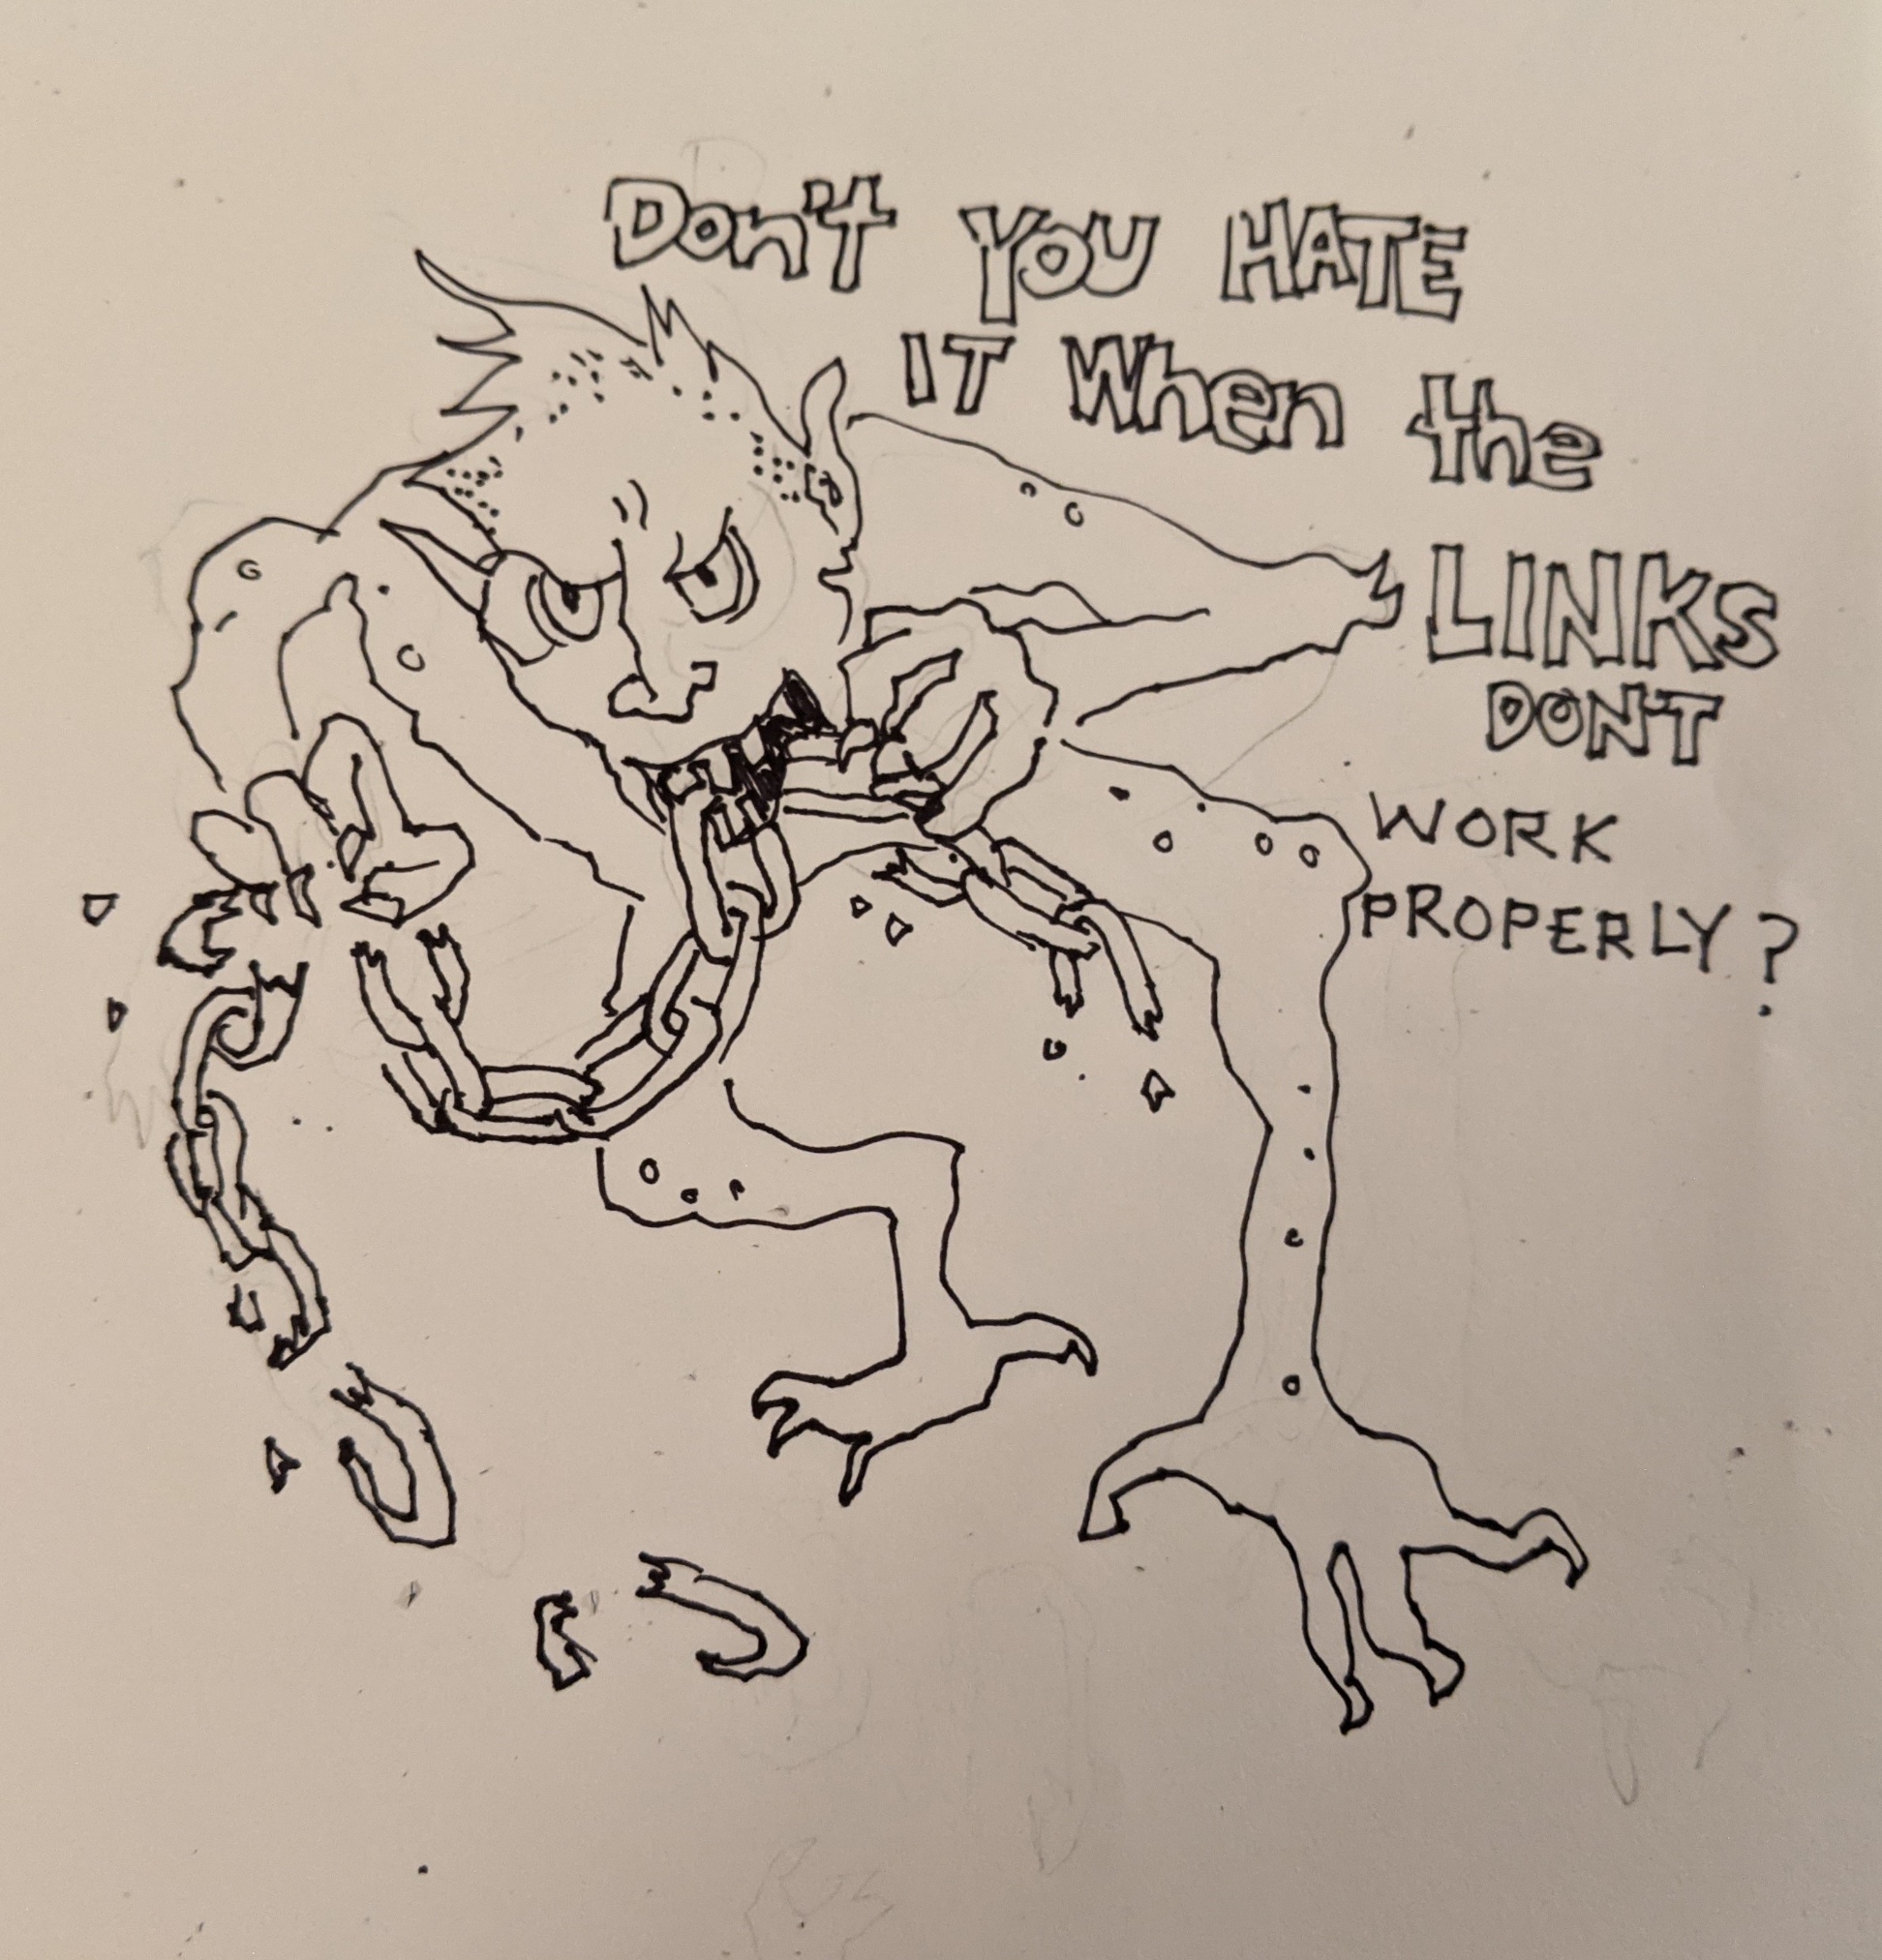 Don't YOU HATE
IT When the
LINKS
DON'T
WORK
PROPERLY?